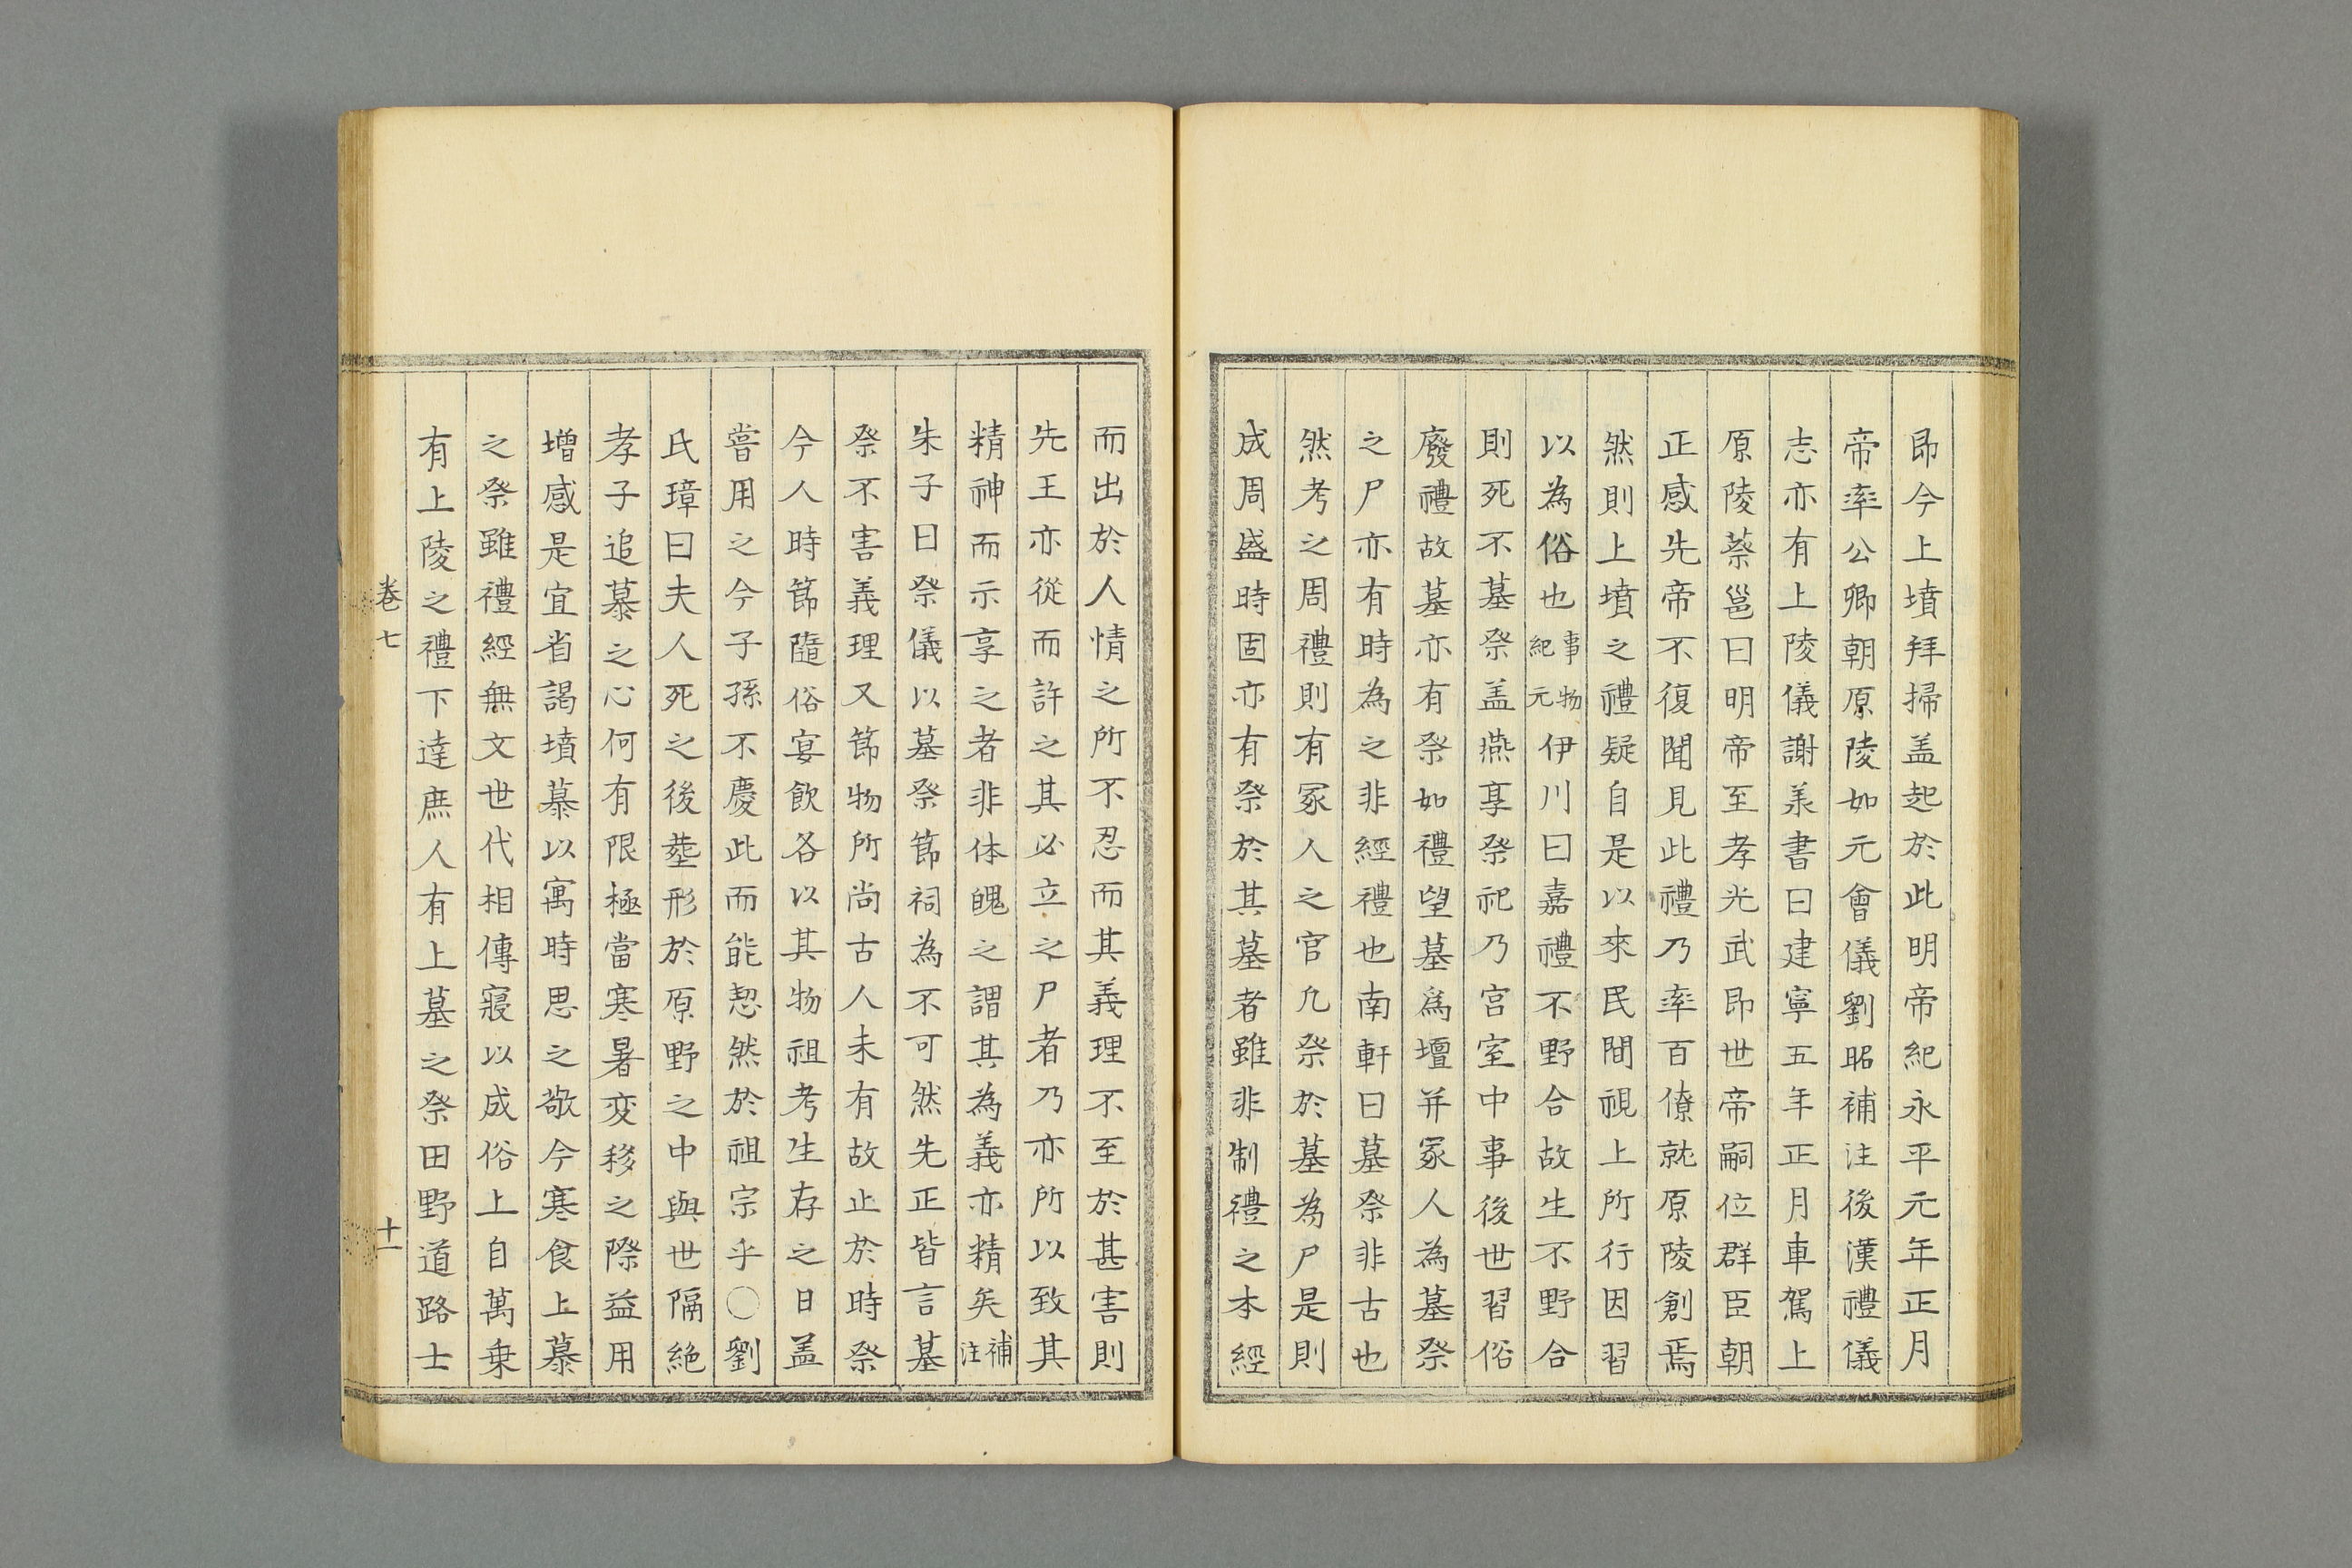 即今上墳拜掃盖起於此明帝紀永平元年正月
帝率公卿朝原陵如元會儀劉昭補注後漢禮儀
志亦有上陵儀謝羕書曰建寧五年正月車駕上
原陵蔡邕曰明帝至孝光武即世帝嗣位群臣朝
正感先帝不復聞見此禮乃率百僚就原陵創焉
然則上墳之禮疑自是以來民間視上所行因習
以為俗也事物紀元伊川曰嘉禮不野合故生不野合
則死不墓祭盖燕享祭祀乃宫室中事後世習俗
廢禮故墓亦有祭如禮望墓爲壇并冢人為墓祭
之尸亦有時為之非經禮也南軒曰墓祭非古也
然考之周禮則有冢人之官凡祭於墓為尸是則
成周盛時固亦有祭於其墓者雖非制禮之本經
而出於人情之所不忍而其義理不至於甚害則
先王亦從而許之其必立之尸者乃亦所以致其
精神而示享之者非体魄之謂其為義亦精矣補注
朱子曰祭儀以墓祭節祠為不可然先正皆言墓
祭不害義理又節物所尚古人未有故止於時祭
今人時節隨俗宴飲各以其物祖考生存之日盖
嘗用之今子孫不慶此而能恝然於祖宗乎○劉
氏璋曰夫人死之後塟形於原野之中與世隔絶
孝子追慕之心何有限極當寒暑変移之際益用
增感是宜省謁墳墓以寓時思之敬今寒食上墓
之祭雖禮經無文世代相傳寢以成俗上自萬乗
有上陵之禮下達庶人有上墓之祭田野道路士
卷七
十一